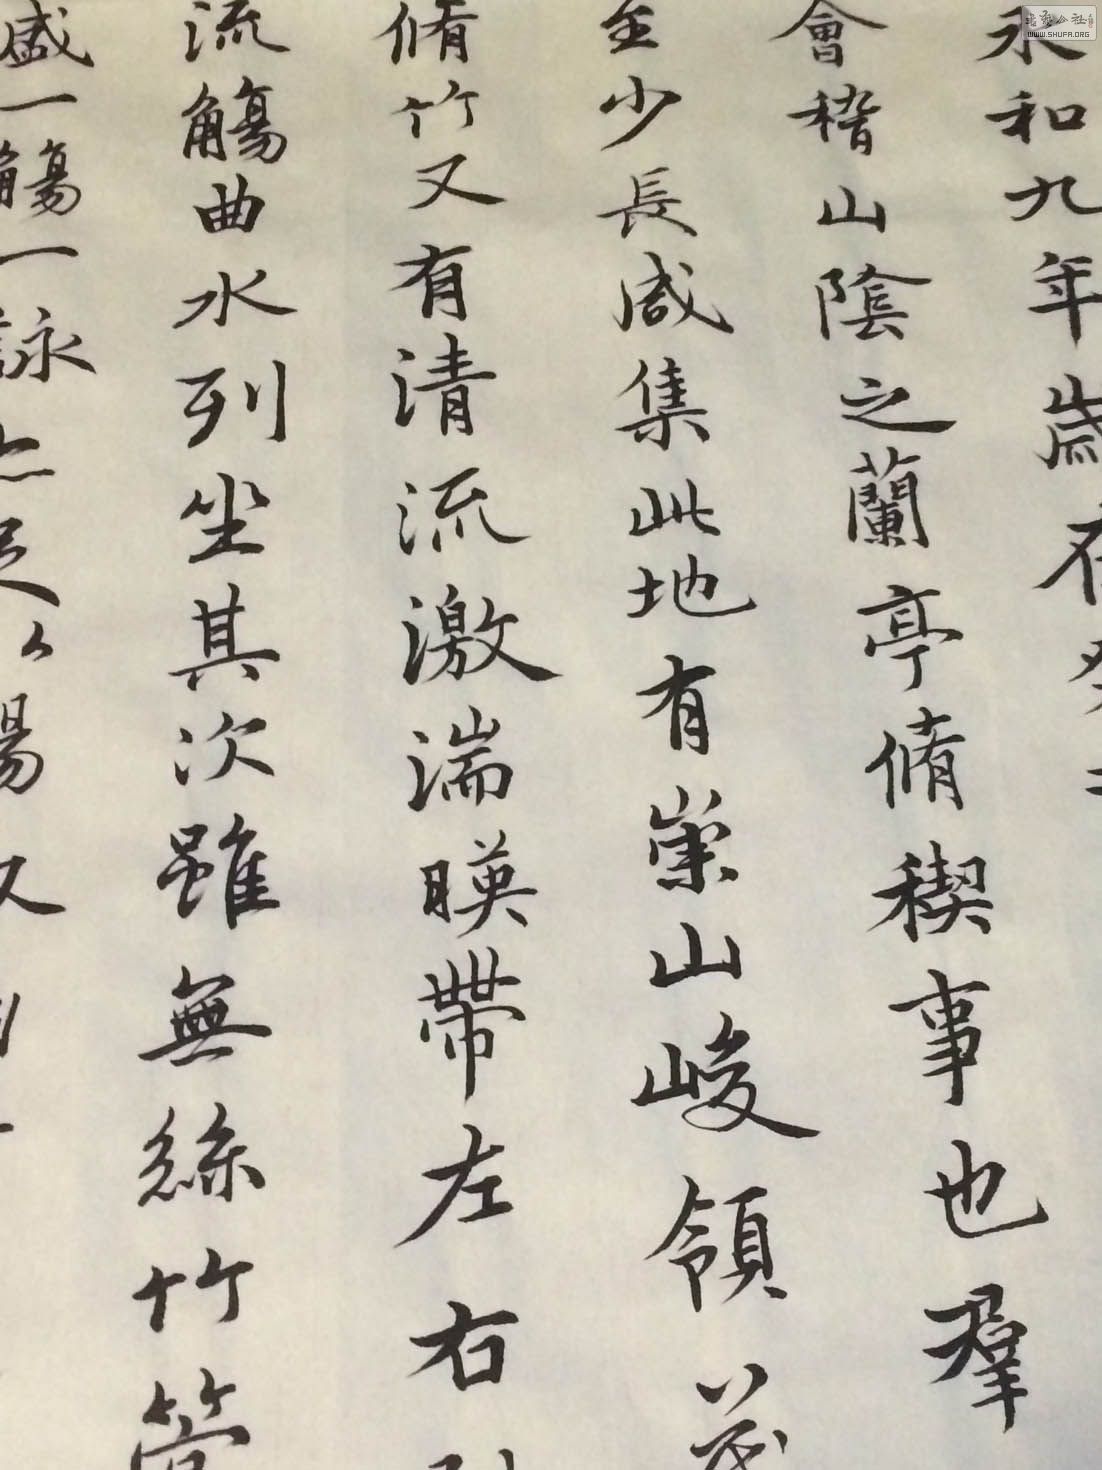 永和九年歲在癸
會稽山陰之蘭亭脩稧事也羣
至少長咸集此地有崇山峻領茂
脩竹又有清流激湍暎帶左右
流觴曲水列坐其次雖無絲竹管
盛一觴一詠亦足以暢又
WWW.SHUFA.ORG